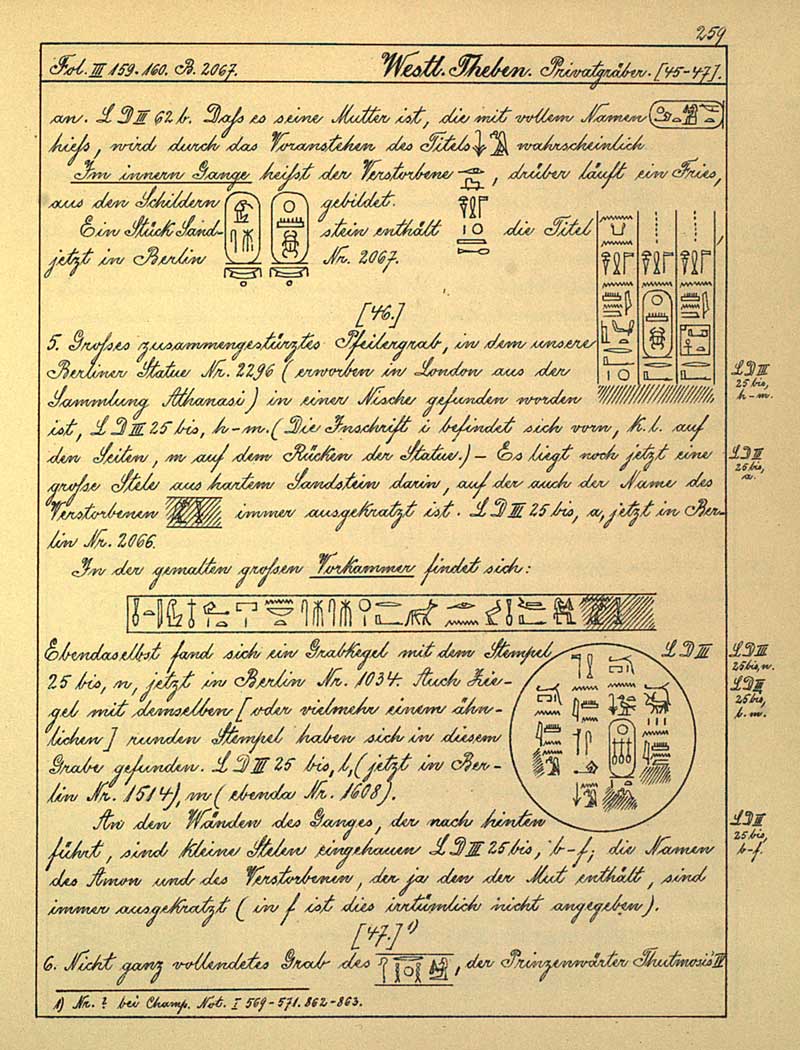 259
Fol. III 159.160. B. 2067. Westl. Theben. Privatgräber. [45-47].
an. L D III 62 b. Daſs es seine Mutter ist, die mit vollem Namen
hieſs, wird durch das Voranstehen des Titels wahrscheinlich
Im innern Gange heiſst der Verstorbene , drüber läuft ein Fries,
aus den Schildern gebildet.
Ein Stück Sand- stein enthält die Titel
jetzt in Berlin Nr. 2067.
[46.]
5. Groſses zusammengestürztes Pfeilergrab, in dem unsere
Berliner Statue Nr. 2296 (erworben in London aus der
Sammlung Athanasi) in einer Nische gefunden worden
ist, L D III 25 bis, h-m. (Die Inschrift i befindet sich vorn, k. l. auf
den Seiten, m auf dem Rücken der Statue.) – Es liegt noch jetzt eine
groſse Stele aus hartem Sandstein darin, auf der auch der Name des
Verstorbenen immer ausgekratzt ist. L D III 25 bis, a, jetzt in Ber-
lin Nr. 2066.
In der gemalten groſsen Vorkammer findet sich:
Ebendaselbst fand sich ein Grabkegel mit dem Stempel L D III
25 bis, n, jetzt in Berlin Nr. 1034. Auch Zie-
gel mit demselben [oder vielmehr einem ähn-
lichen] runden Stempel haben sich in diesem
Grabe gefunden. L D III 25 bis, l, (jetzt in Ber-
lin Nr. 1514), m (ebenda Nr. 1608).
An den Wänden des Ganges, der nach hinten
führt, sind kleine Stelen eingehauen L D III 25 bis, b-f; die Namen
des Amon und des Verstorbenen, der ja den der Mut enthält, sind
immer ausgekratzt (in f ist dies irrtümlich nicht angegeben).
[47.] 1)
6. Nicht ganz vollendetes Grab des , der Prinzenwärter Thutmosis' IV
1) Nr. ? bei Champ. Not. I 569-571. 862-863.
L D III
25 bis,
h-m.
L D III
25 bis,
a.
L D III
25 bis, n.
L D III
25 bis,
L D III
25 bis,
b-f.